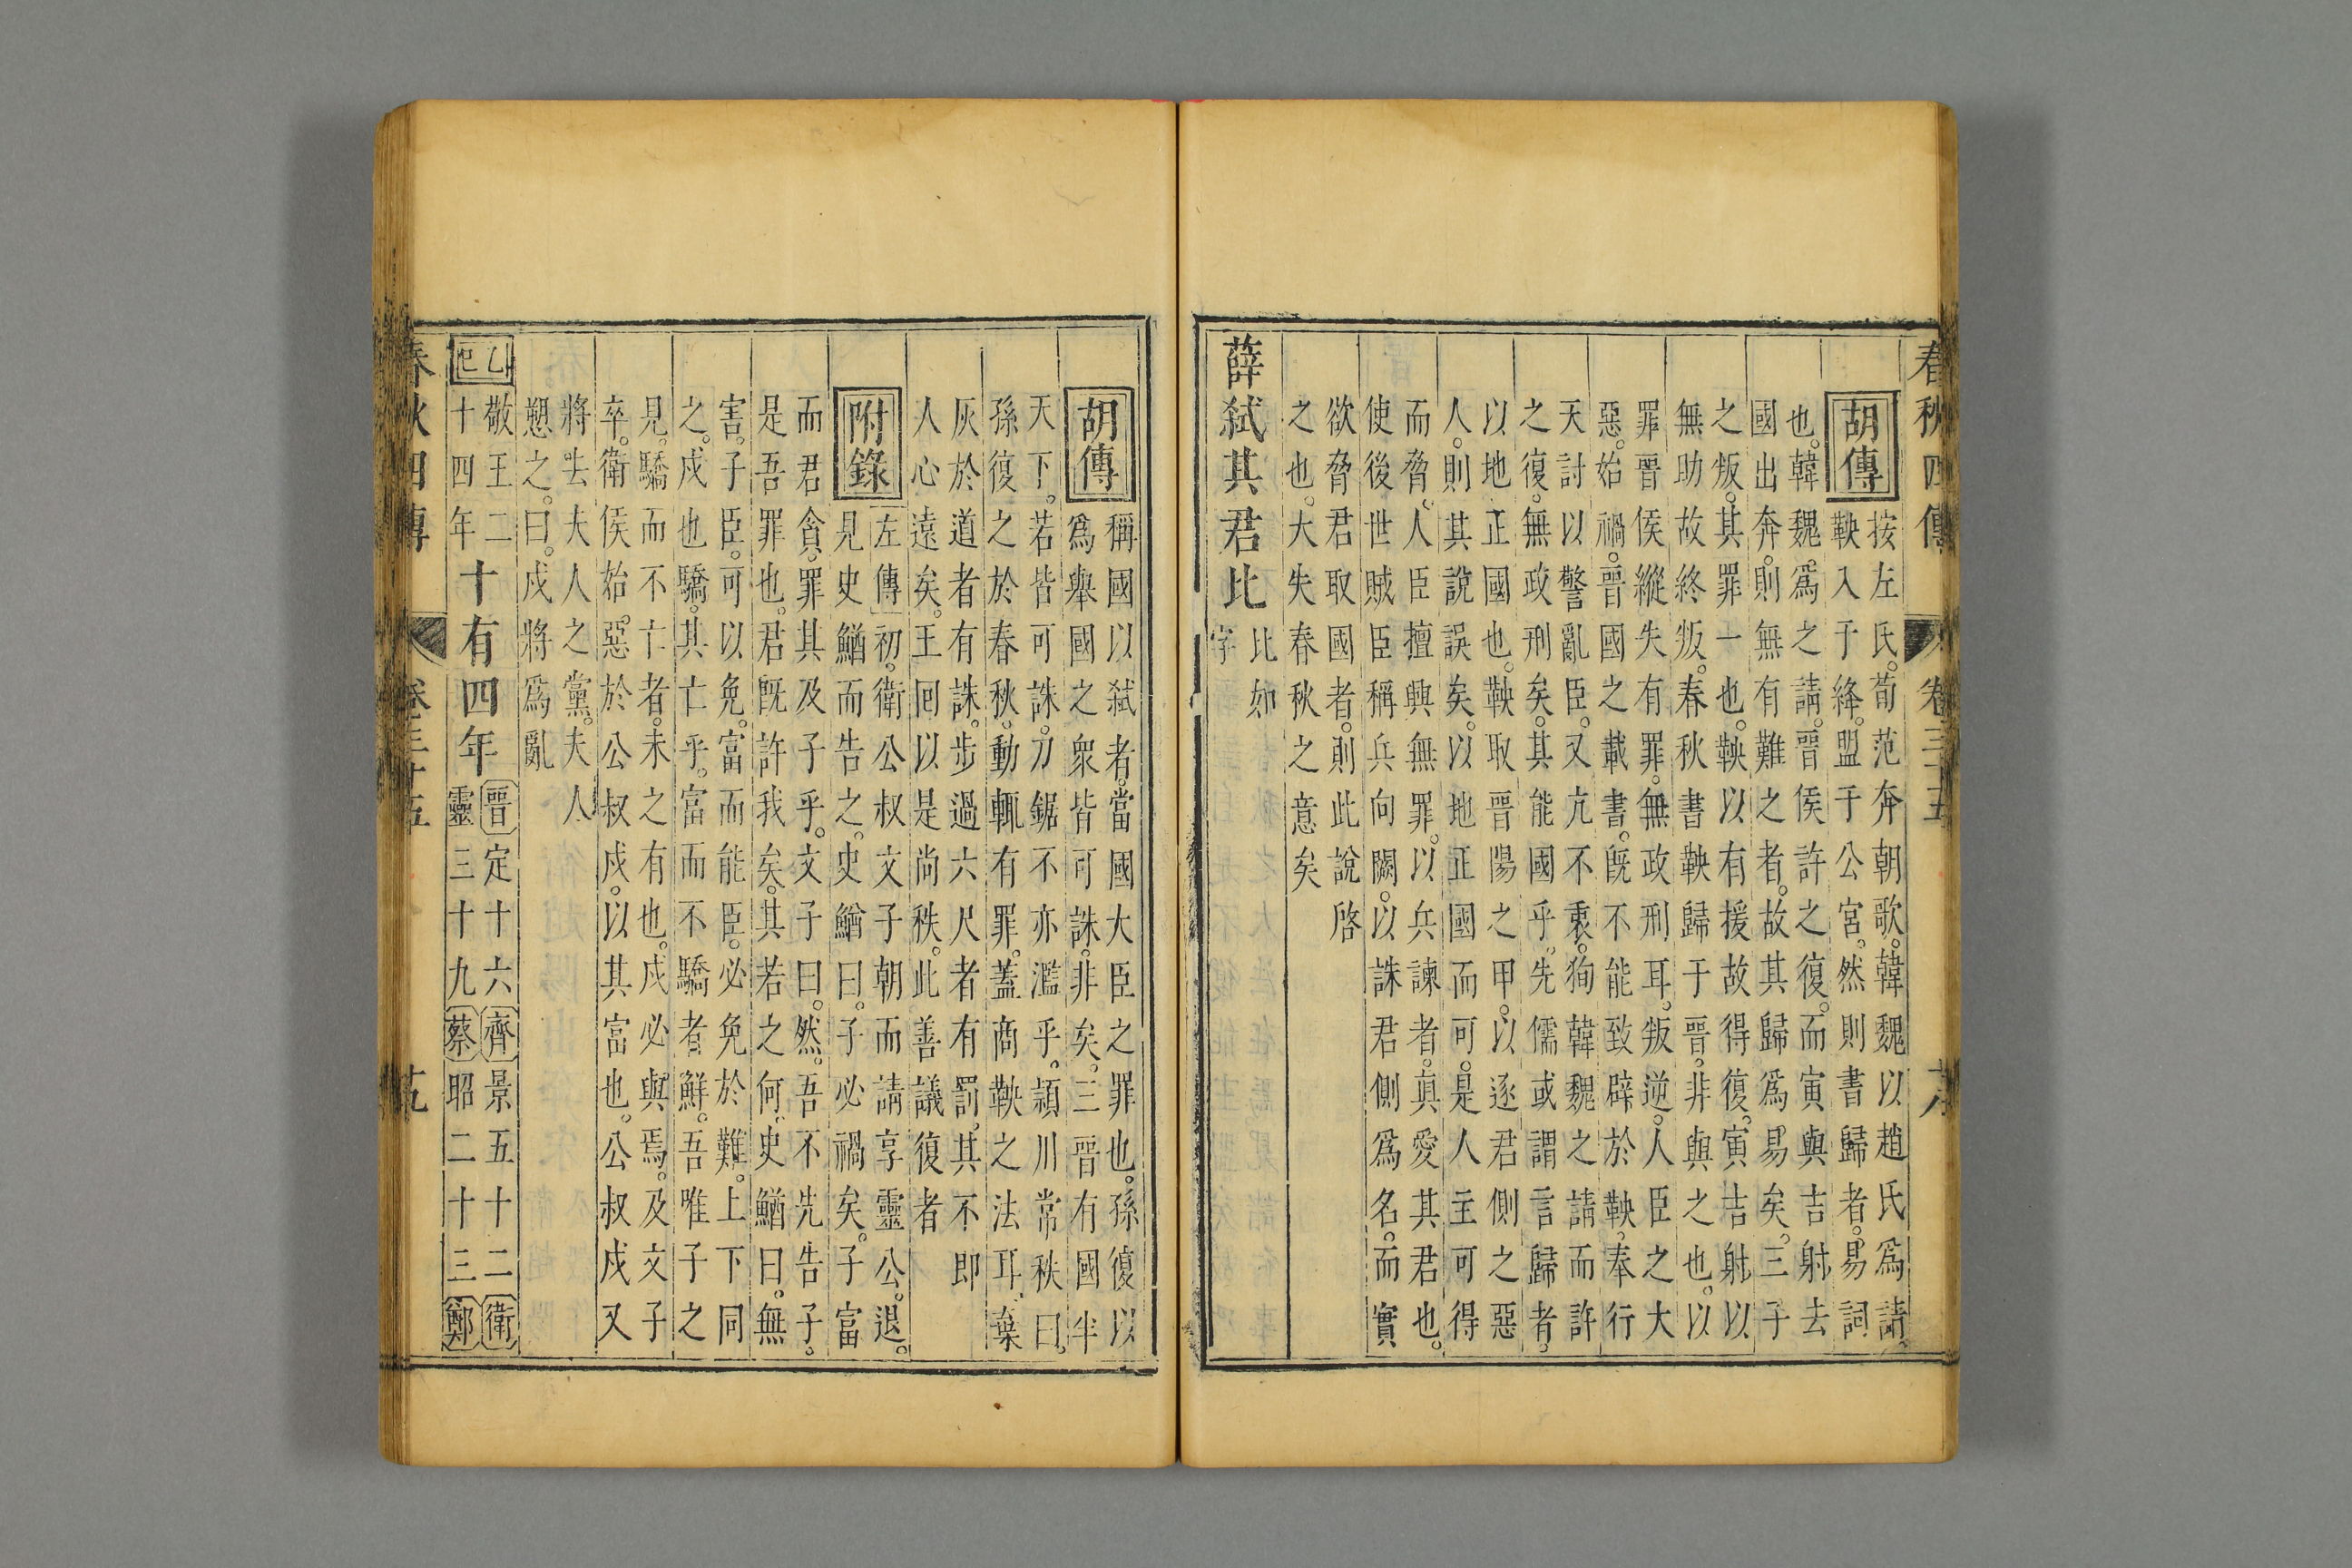 春秋四傳 卷三十五
胡傳
按左氏。荀范奔朝歌。韓魏以趙氏爲請。
鞅入于絳。盟于公宮。然則書歸者。易詞
也。韓魏爲之請。晉侯許之復。而寅與吉射去
國出奔。則無有難之者。故其歸爲易矣。三子
之叛。其罪一也。鞅以有援故得復。寅吉射以
無助故終叛。春秋書鞅歸于晉。非與之也。以
罪晉侯縱失有罪。無政刑耳。叛逆。人臣之大
惡。始禍。晉國之載書。旣不能致辟於鞅。奉行
天討以警亂臣。又亢不衷。狥韓魏之請而許
之復。無政刑矣。其能國乎。先儒或謂言歸者。
以地正國也。鞅取晉陽之甲。以逐君側之惡
人。則其說誤矣。以地正國而可。是人主可得
而脅。人臣擅興無罪。以兵諫者。眞愛其君也。
使後世賊臣稱兵向闕。以誅君側爲名。而實
欲脅君取國者。則此說啓
之也。大失春秋之意矣
薛弑其君比
比如
字
胡傳
稱國以弑者。當國大臣之罪也。孫復以
爲舉國之衆皆可誅。非矣。三晉有國半
天下。若皆可誅。刀鋸不亦濫乎。頴川常秩曰。
孫復之於春秋。動輒有罪。蓋商鞅之法耳。棄
灰於道者有誅。步過六尺者有罰。其不即
人心遠矣。王回以是尚秩。此善議復者
附錄
左傳 初。衛公叔文子朝而請享靈公。退。
見史鰌而告之。史鰌曰。子必禍矣。子富
而君貪。罪其及子乎。文子曰。然。吾不先告子。
是吾罪也。君旣許我矣。其若之何。史鰌曰。無
害。子臣。可以免。富而能臣。必免於難。上下同
之。戍也驕。其亡乎。富而不驕者鮮。吾唯子之
見。驕而不亡者。未之有也。戍必與焉。及文子
卒。衛侯始惡於公叔戍。以其富也。公叔戍又
將去夫人之黨。夫人
愬之。曰。戍將爲亂
乙巳
敬王二
十四年
十有四年
晉定十六齊景五十二衛
靈三十九蔡昭二十三鄭
春秋四傳 卷三十五